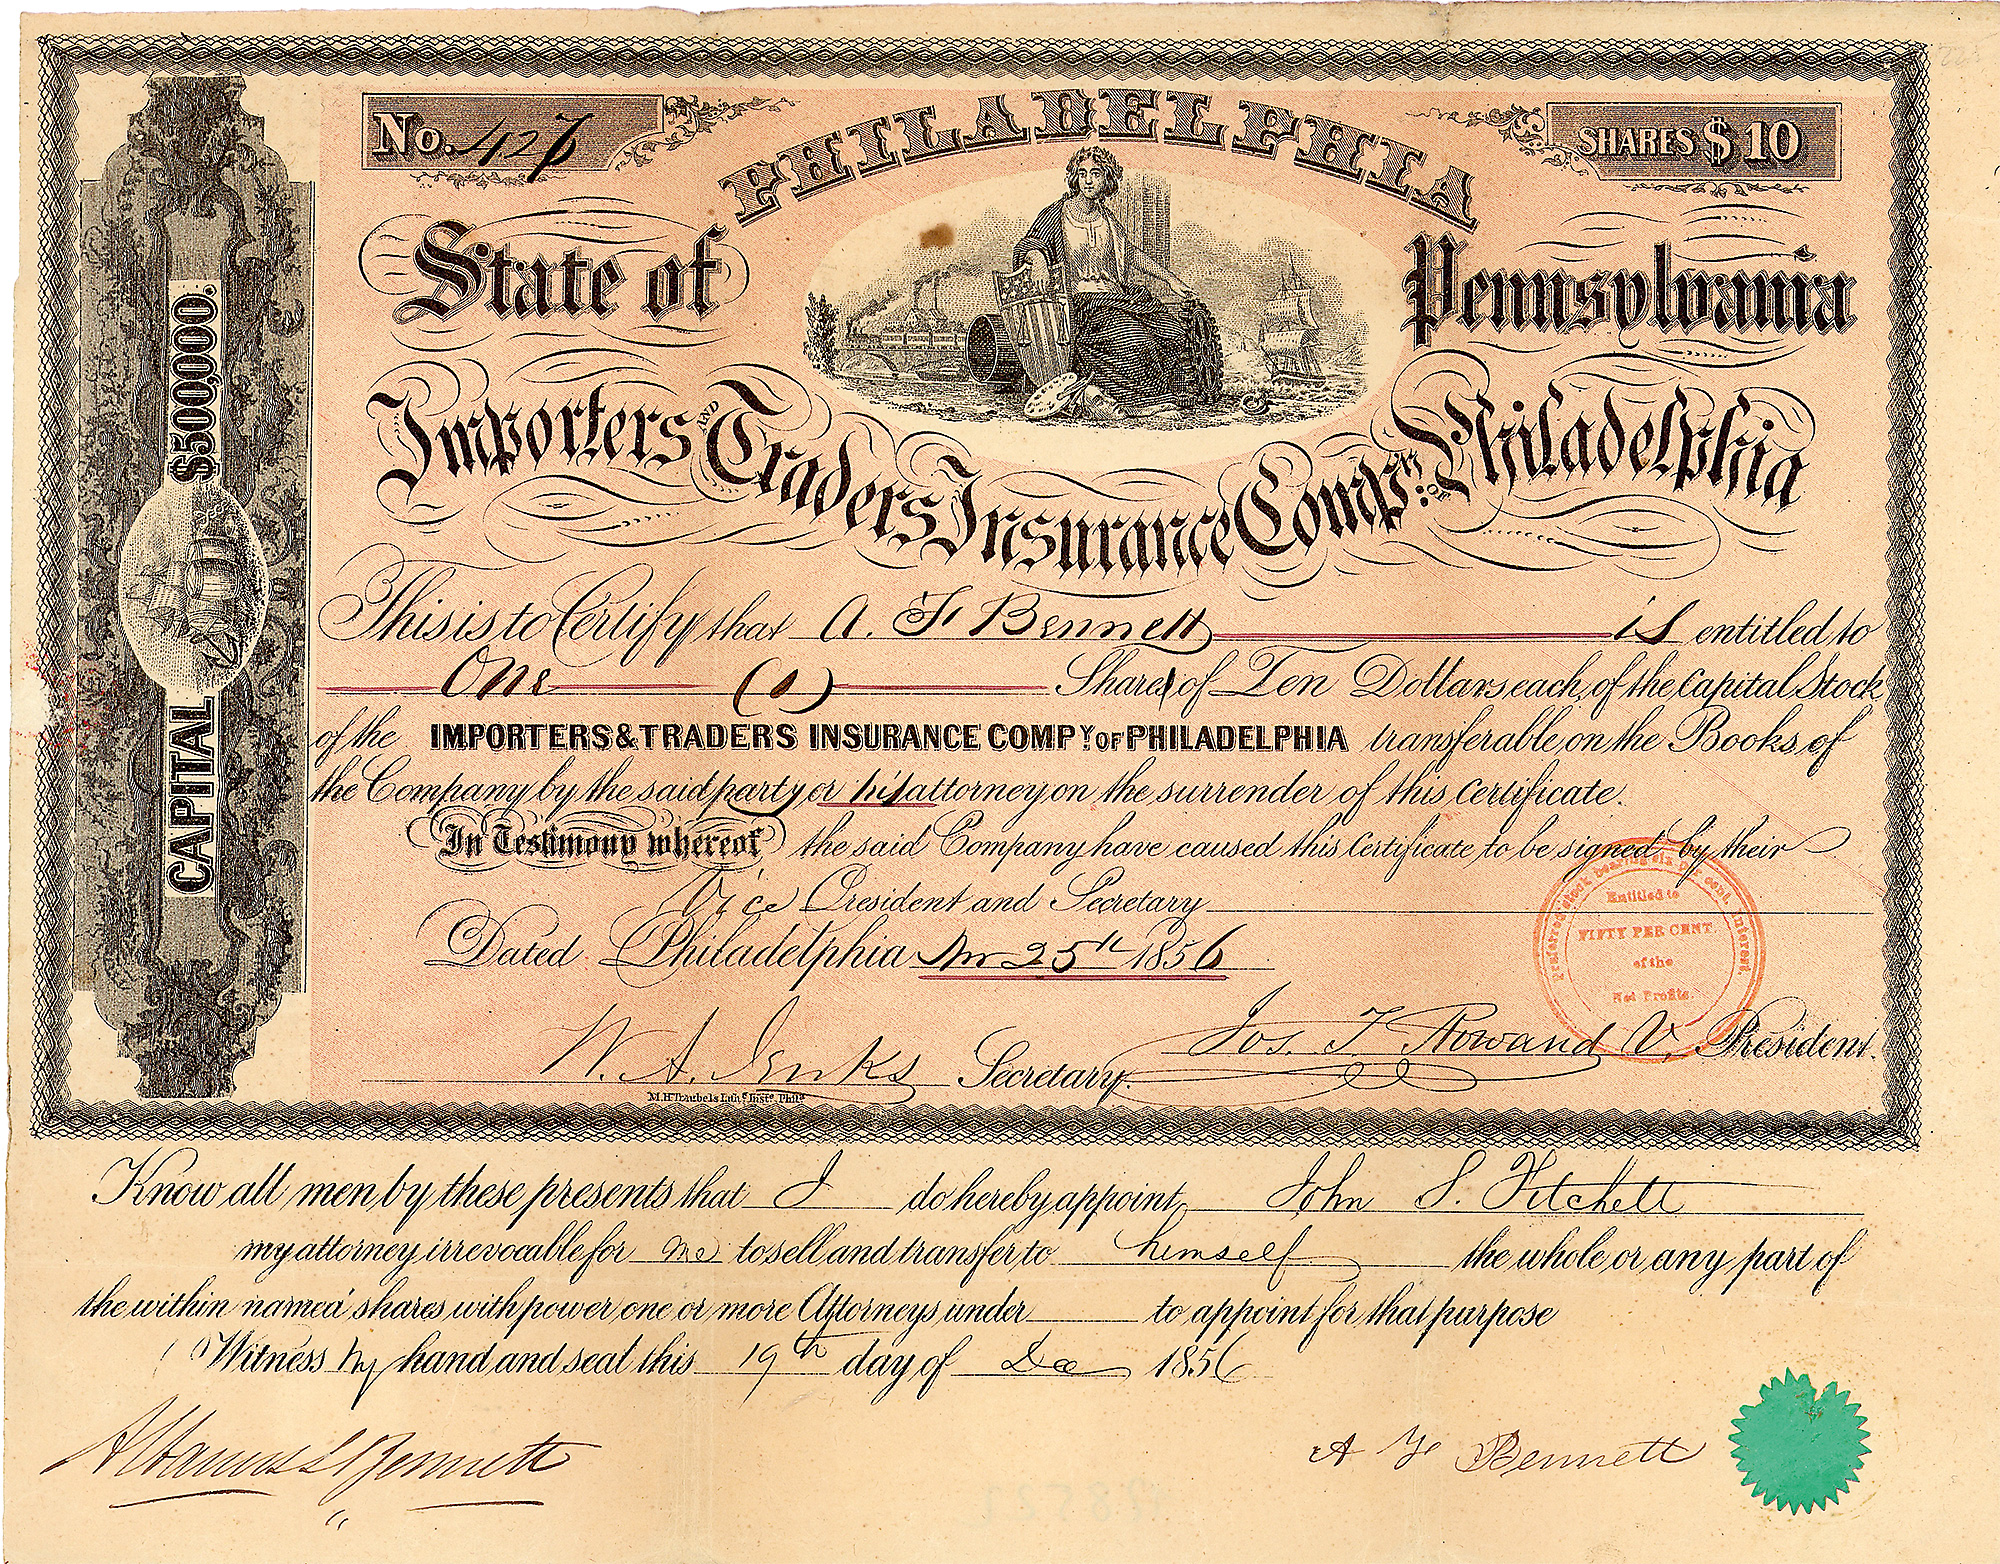 No. 427
PHILADELPHIA
SHARES $10
State of Pennsylvania
Importers AND Traders Insurance Compy. OF Philadelphia
CAPITAL $500,000.
This is to Certify that A. F. Bennett is entitled to
One (1) Shares of Ten Dollars each, of the Capital Stock
of the IMPORTERS & TRADERS INSURANCE COMPY OF PHILADELPHIA transferable, on the Books, of
the Company by the said party or his attorney on the surrender of this Certificate.
In Testimony whereof the said Company have caused this Certificate to be signed by their
Vice President and Secretary
Dated Philadelphia 25th 1856
Preferred stock bearing six per cent. interest.
Entitled to
FIFTY PER CENT.
of the
Net Profits.
W. A. Jenks Secretary. Jos. T Rowand V. President.
M.H. Traubels Lithc. Insts. Phila.
Know all men by these presents that I do hereby appoint, John S. Fitchett
my attorney irrevocable for me to sell and transfer to himself the whole, or any part of
the within named shares with power, one or more Attorneys under to appoint for that purpose
Witness my hand and seal this 19th day of Dec 1856
Albanus L Bennett
A F Bennett